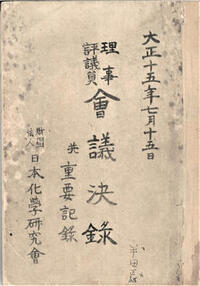 大正十五年七月十五日
理事
評議員
會議決錄
共重要記錄
財團
法人
日本化学研究會